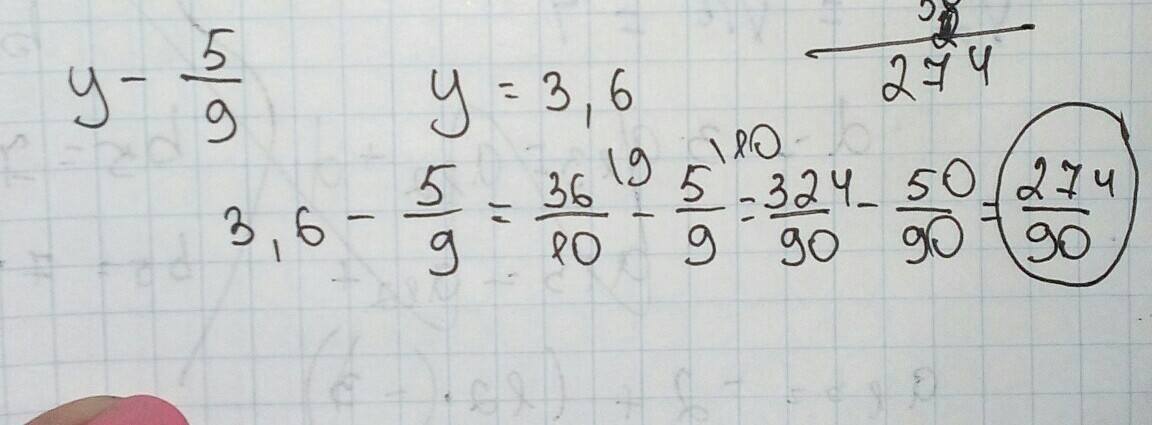 274
y - 5/9 y = 3,6
3,6 - 5/9 = 36/10 \9 - 5/9 \10 = 324/90 - 50/90 = 274/90